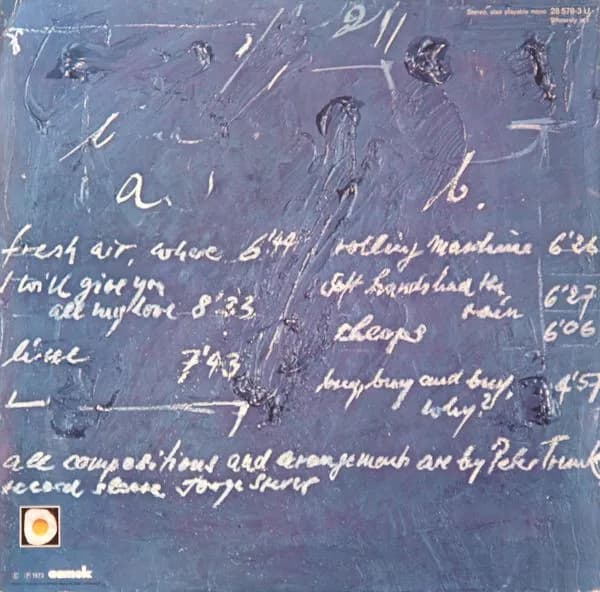 Stereo, also playable mono 28 578-3 U
a.
b.
fresh air, where 6'44
I will give you
all my love 8'33
line 7'43
rolling maschine 6'26
soft hands like the
rain 6'27
cheops 6'06
buy, buy and buy, 4'57
why?
all compositions and arrangements are by Peter Trunk
record sleeve Jorge Stever
© ℗ 1973